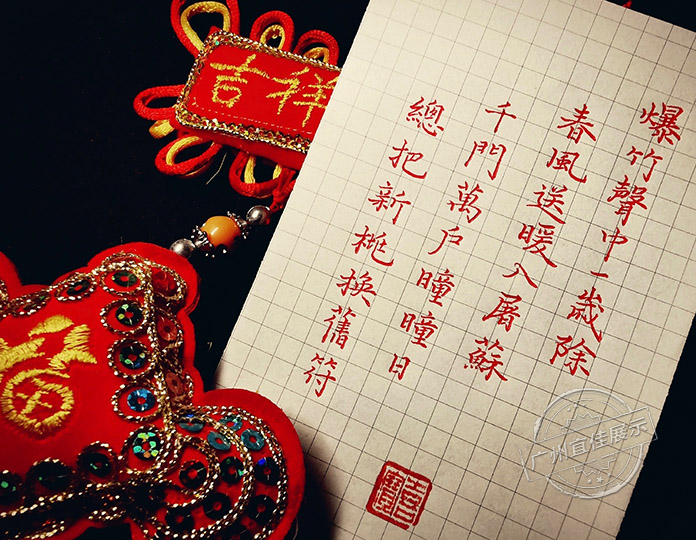 爆竹聲中一歲除
春風送暖入屠蘇
千門萬戶瞳瞳日
總把新桃換舊符
吉祥
福
广州宜佳展示